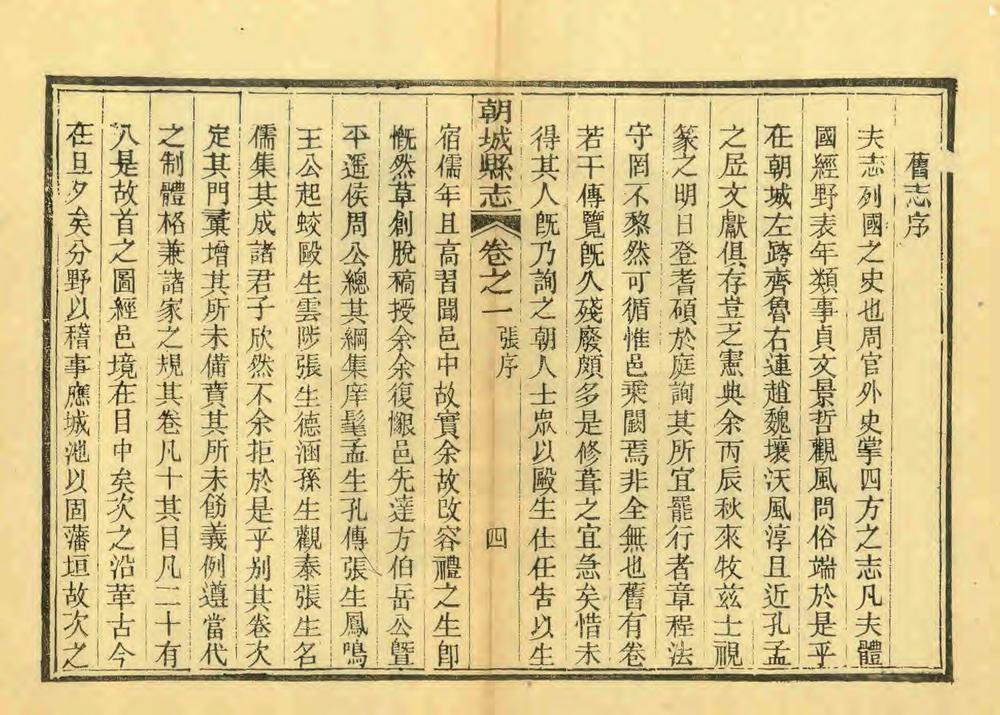 舊志序
夫志列國之史也周官外史掌四方之志凡夫體
國經野表年類事貞文景哲觀風問俗端於是乎
在朝城左跨齊魯右連趙魏壤沃風淳且近孔孟
之居文獻俱存豈乏憲典余丙辰秋來牧茲土視
篆之明日登耆碩於庭詢其所宜罷行者章程法
守罔不黎然可循惟邑乘闕焉非全無也舊有卷
若干傳覽旣久殘廢頗多是修葺之宜急矣惜未
得其人旣乃詢之朝人士眾以毆生仕任告以生
朝城縣志
卷之一
張序
四
宿儒年且高習聞邑中故實余故改容禮之生卽
慨然草創脫稿授余余復懇邑先達方伯岳公曁
平遥侯周公總其綱集庠髦孟生孔傳張生鳳鳴
王公起蛟毆生雲陟張生德涵孫生觀泰張生名
儒集其成諸君子欣然不余拒於是乎別其卷次
定其門彙增其所未備賁其所未飭義例遵當代
之制體格兼諸家之規其卷凡十其目凡二十有
八是故首之圖經邑境在目中矣次之沿革古今
在旦夕矣分野以稽事應城池以固藩垣故次之